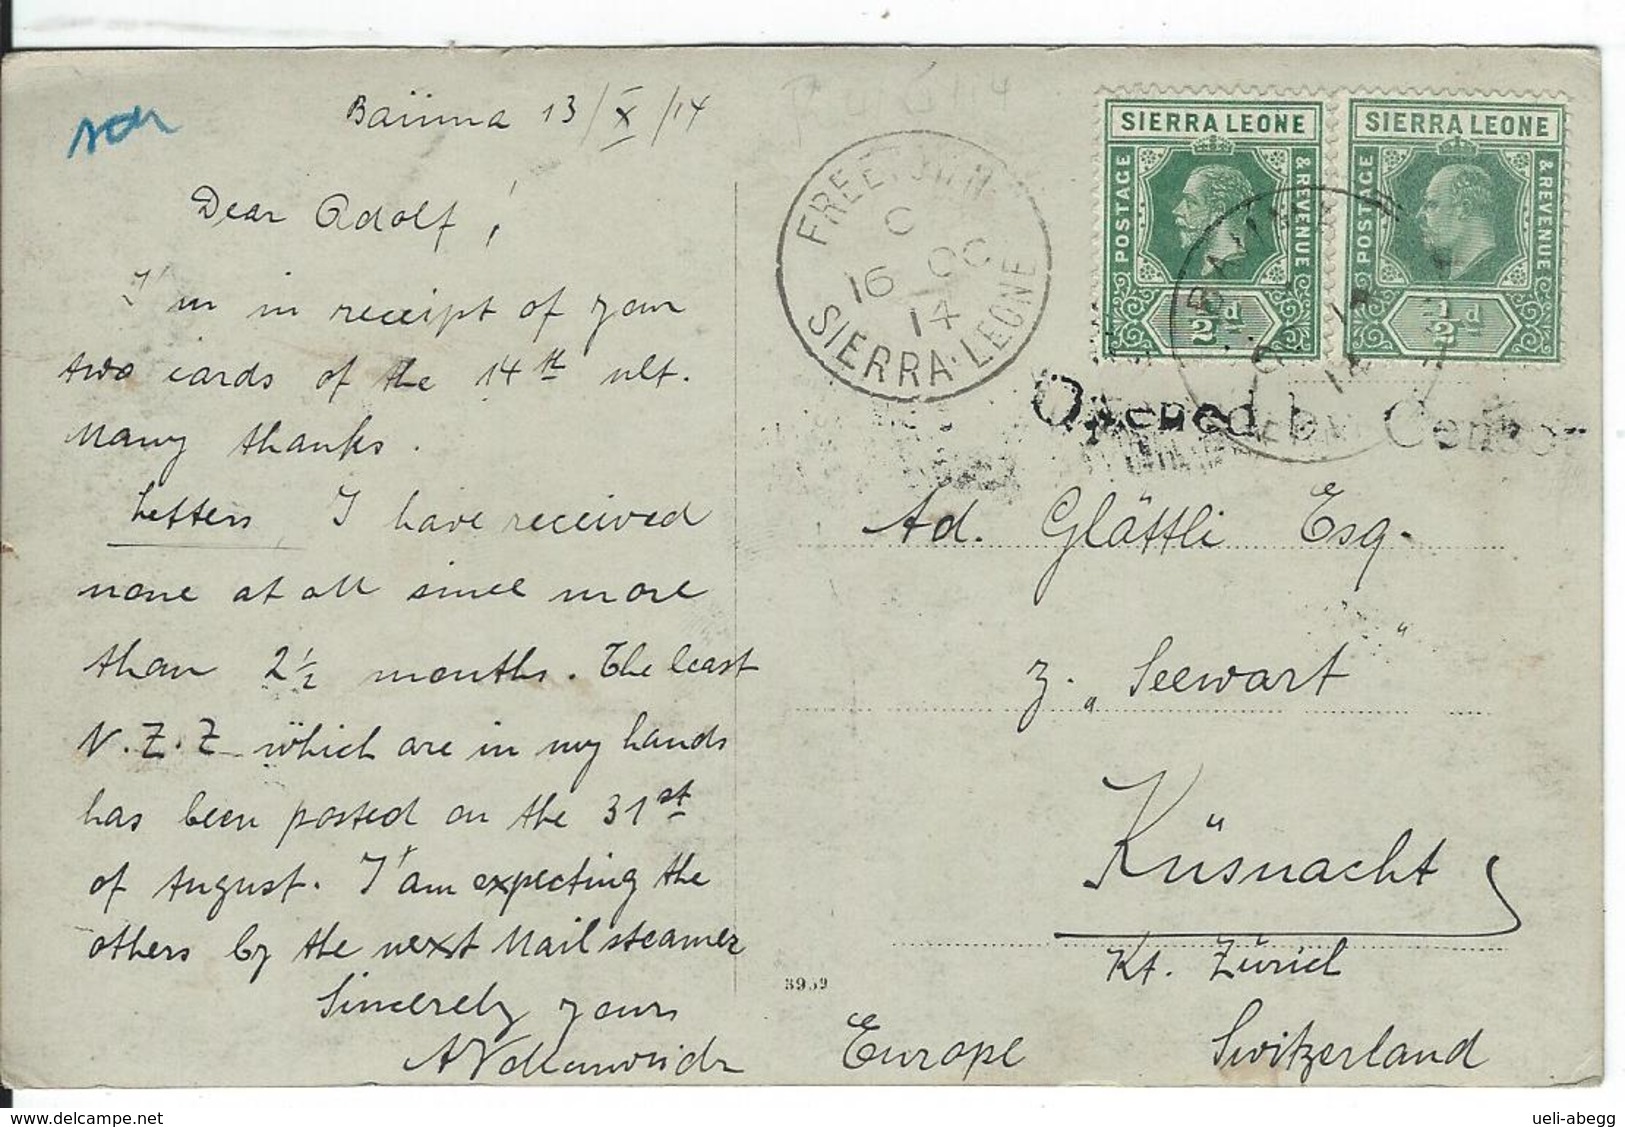 Baiima 13/X/14
Dear Adolf!
I'm in receipt of your
two cards of the 14th ult.
Many thanks.
Letters, I have received
none at all since more
than 2½ months. The least
N.Z.Z. which are in my hands
has been posted on the 31st
of August. I'am expecting the
others by the next Mail steamer
Sincerely yours
FREETOWN
C
16 OC
14
SIERRA·LEONE
SIERRA LEONE
POSTAGE
& REVENUE
½d
SIERRA LEONE
POSTAGE
& REVENUE
½d
Opened by Censor
Ad. Glättli Esq.
z. „Seewart"
Küsnacht
Kt. Zürich
Europe Switzerland
3959
ueli-abegg